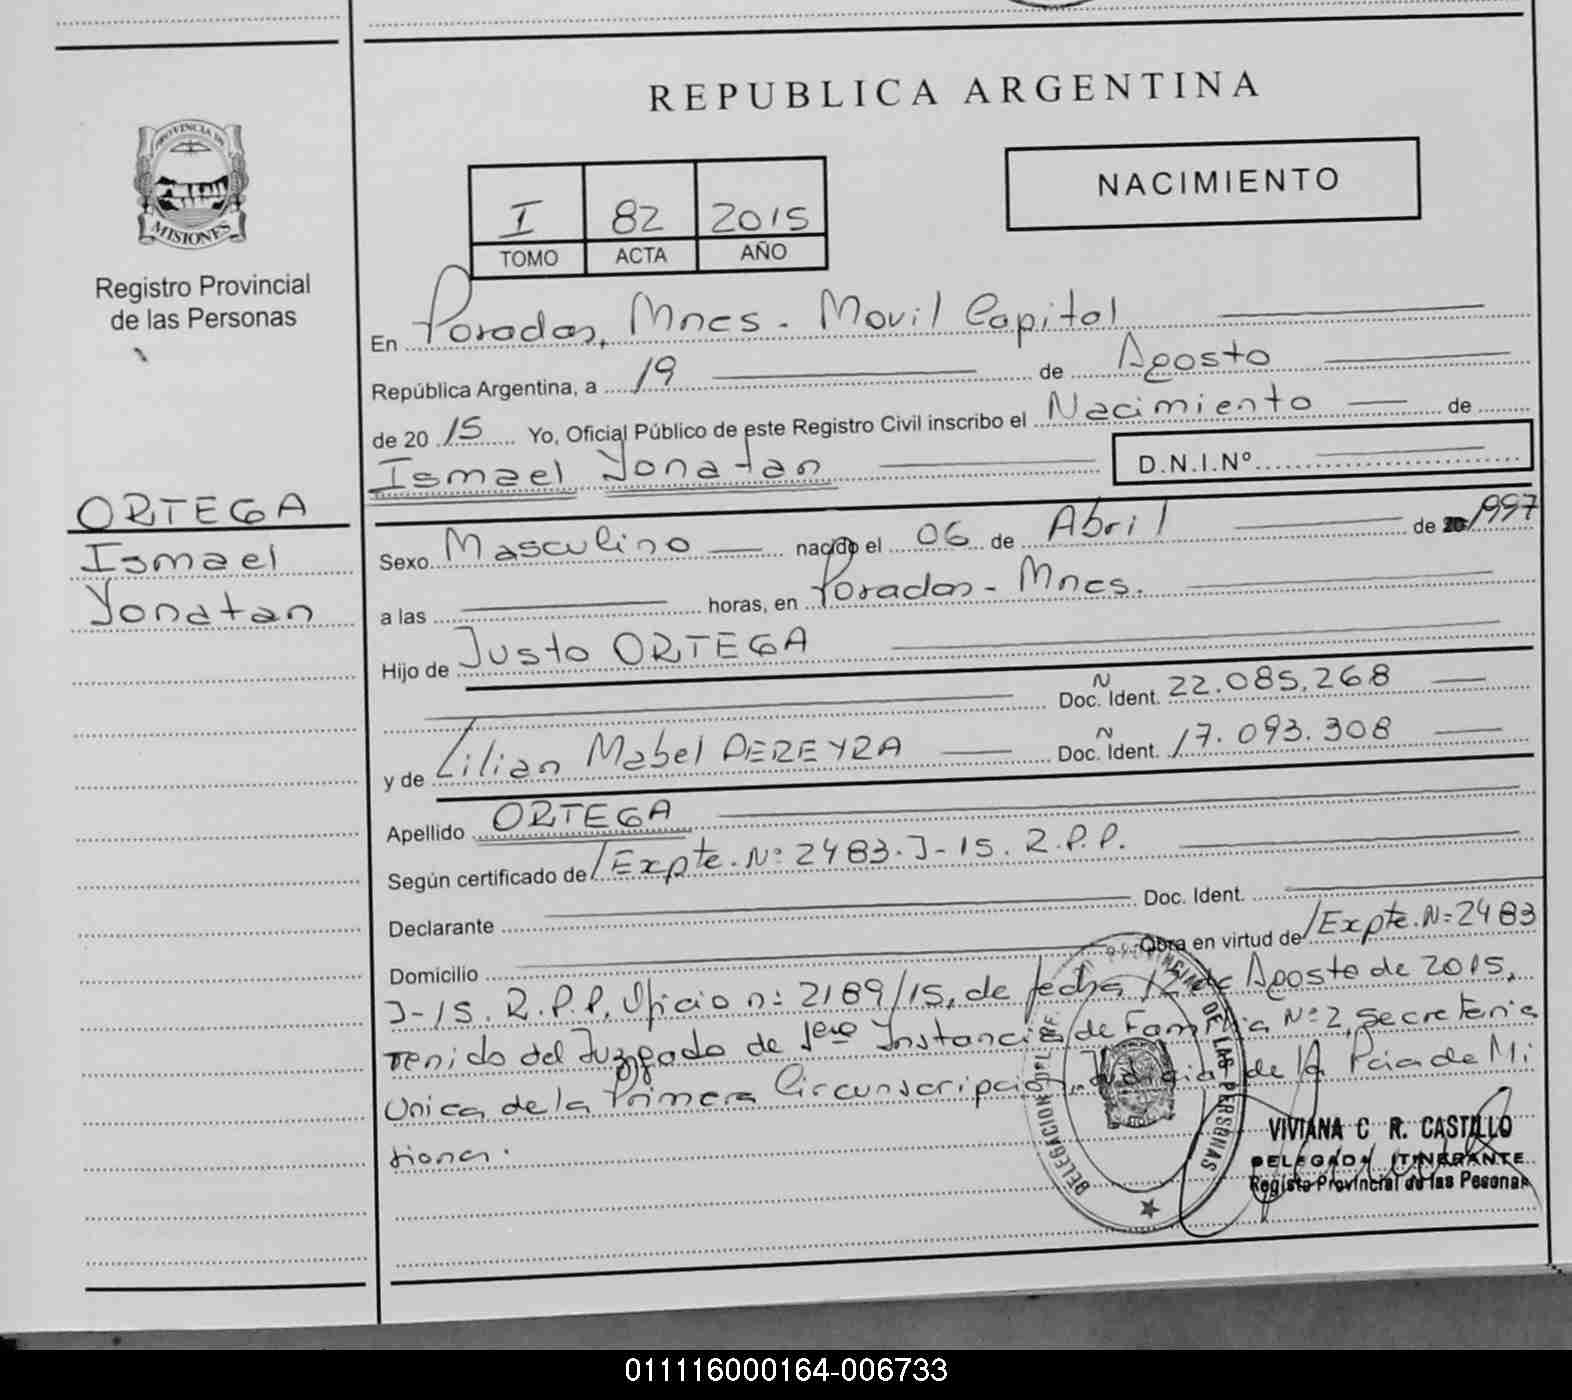 REPUBLICA ARGENTINA
PROVINCIA DE
MISIONES
Registro Provincial
de las Personas
NACIMIENTO
I 82 2015
TOMO ACTA AÑO
En Posadas, Mnes. Movil Capital
República Argentina, a 19 de Agosto
de 2015 Yo, Oficial Público de este Registro Civil inscribo el Nacimiento de
Ismael Yonatan D.N.I.Nº
ORTEGA
Ismael
Yonatan
Sexo Masculino nacido el 06 de Abril de 1997
a las horas, en Posadas - Mnes.
Hijo de Justo ORTEGA
Doc. Ident. 22.085.268
y de Lilian Mabel PEREYRA Doc. Ident. 17.093.308
Apellido ORTEGA
Según certificado de /Expte. Nº 2483-J-15. R.P.P.
Declarante Doc. Ident.
Domicilio Obra en virtud de /Expte. Nº 2483
J-15. R.P.P. Oficio nº 2189/15, de fecha 12 de Agosto de 2015,
venido del Juzgado de 1ero Instancia de Familia Nº 2, Secretaria
Unica de la Primera Circunscripcion Judicial de la Pcia de Mi
siones.
DELEGACION
DE LAS PERSONAS
VIVIANA C R. CASTILLO
DELEGADA ITINERANTE
Registro Provincial de las Pesonas
011116000164-006733